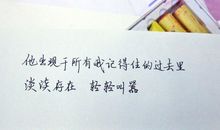 他出现于所有我记得住的过去里
淡淡存在 轻轻叫嚣